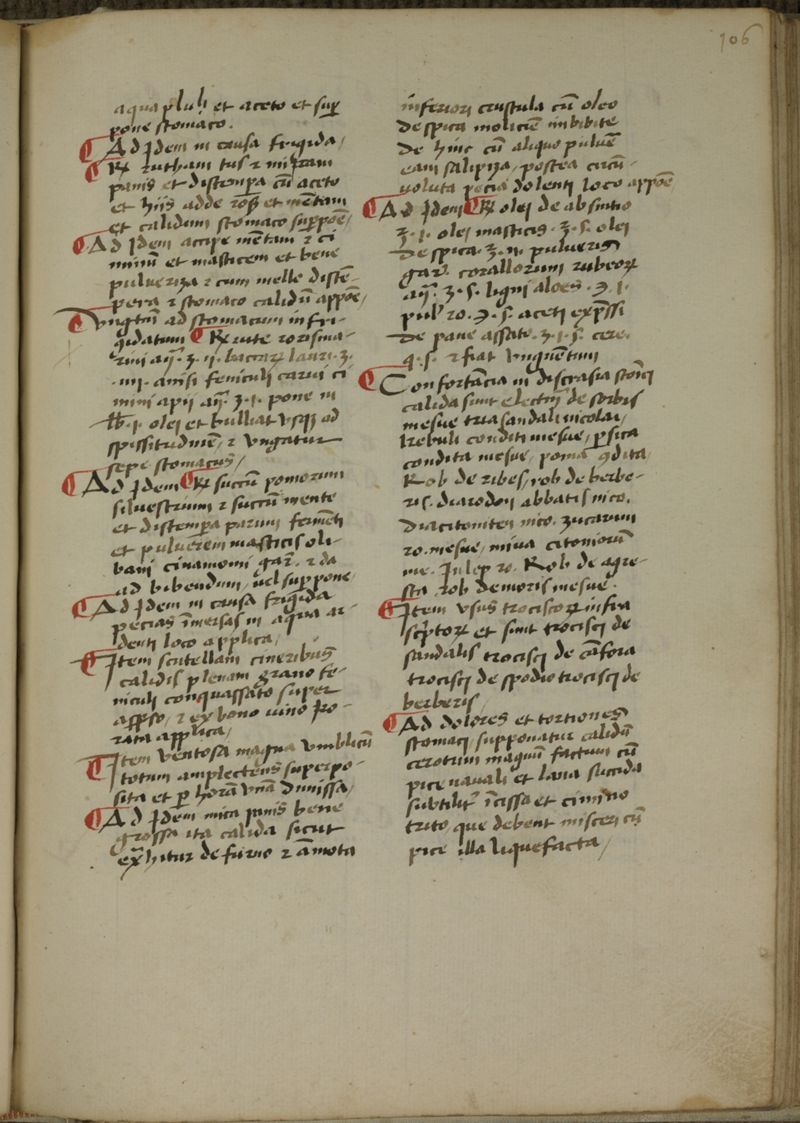 106
aqua pluli et aceto et suꝑ
pone stomaco.
Ad Idem in causa frigida/
℞ rutham tus ⁊ micam
panis et distempa cū aceto
et hijs adde ros et mētam
et calidum stomaco suppōe/
Ad Idem accipe mētam ⁊ ci
minū et masticem et bene
pulueriza ⁊ cum melle distē-
pera ⁊ stomaco calidū appōe/
Vngtm ad stomacum infri-
gidatum ℞ rute rorisma-
rini aȳ. ʒ. ij. baccaꝝ lauri. ʒ.
.iij. anisi feniculi carui ci
mini apij aȳ. ʒ. j. pone in
lb. j. olej et bulliat vsqꝫ ad
spissitudinē/ ⁊ vngatur
sepe stomacus/
Ad Idem ℞ succū pomorum
siluestrium ⁊ succū mente
et distempa parum fermēti
et puluerem masticis oli-
bani cinamomi gar. ⁊ da
ad bibendum/ uel suppone/
Ad Idem in causa frigida
pecias īmersas in aqua ar-
denti loco applica/
Item scutellam cineribus
calidis plenam grano fe-
niculi conquassato super
asp̄so/ ⁊ ex bono uino ro-
rata applica/
Item ventosa magna vmblicū
totum amplectens superpo-
sita et ꝑ horā vnā dimissa/
Ad Idem mica panis bene
grossa ita calida sicut
exhitur de furno ⁊ āmota
inferiori crustula cū oleo
de spica moliciē imbibite
de hinc cū aliquo puluē
eam salipiza/ postea circū-
uoluta pecia dolenti loco appōe
Ad Idem ℞ olej de absintio
ʒ. j. olej masticis. ʒ. s. olej
de spica. ʒ. ij. pulueris
gar. corallorum rubeoꝝ
aȳ. ʒ. s. ligni aloes. ℈. j.
pul̄ ro. ℈. s. acetj exp̄ssi
de pane assato. ʒ. j. s. cere.
q. s. ⁊ fiat vnguētum
Confortācia in discrasia stōci
calida sunt electm̄ de sorbis
mesue triasandali nicolai/
kebuli conditi mesue/ ꝑsica
condita mesue/ poma ꝯdita
Rob de ribes/ rob de berbe-
ris. diarodon abbatis nico.
diacitoniten nico. zucarum
ro. mesue/ miua citoniorū
me. Julep ro. Rob de agre-
sta rob de moris mesue.
Item vsus trociscoꝝ infra
sc̄ptoꝝ et sunt trociscj de
sandalis trociscj de cāfora
trociscj de spodio trociscj de
berberis/
Ad dolores et tortiones
stomacj/ supponatur calidū
cerotum magnū factum cū
pice nauali et lana succida
subtilit̄ īcissa et cimino
trito que debent misceri cū
pice illa liquefacta/